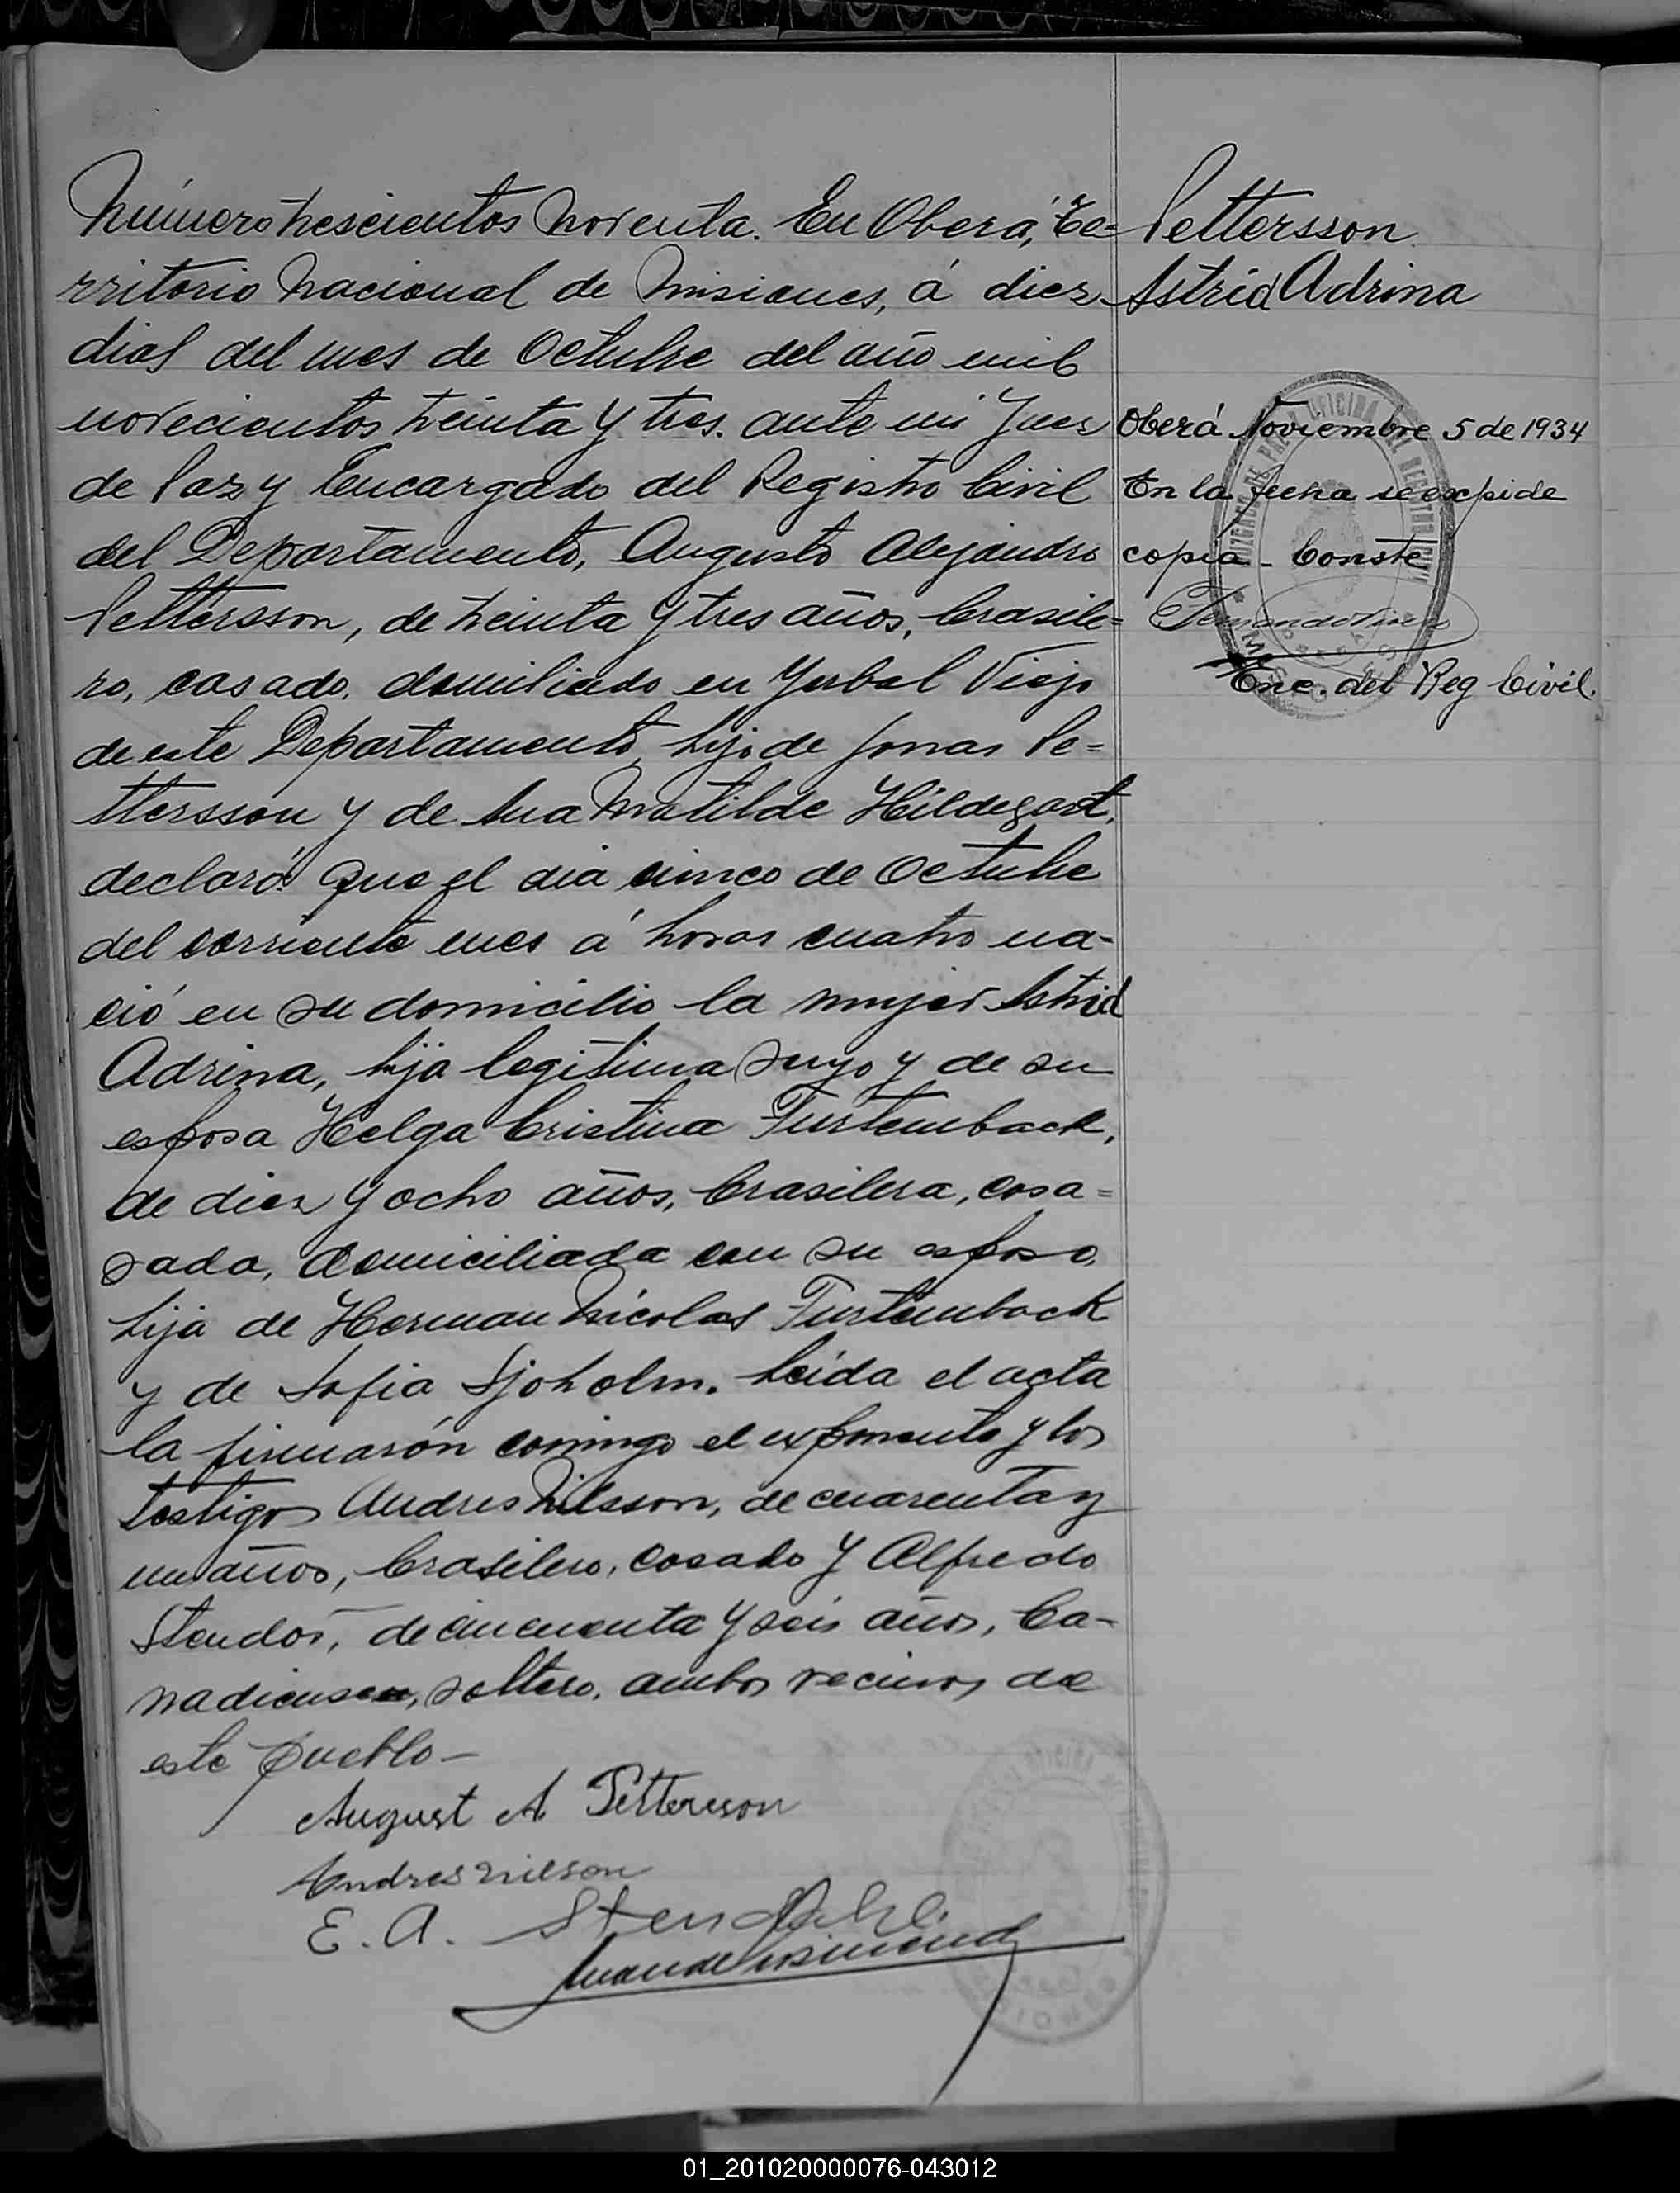 Número trescientos noventa. En Oberá, Te-
rritorio Nacional de Misiones, á diez
dias del mes de Octubre del año mil
novecientos treinta y tres. ante mi Juez
de Paz y Encargado del Registro Civil
del Departamento, Augusto Alejandro
Pettersson, de treinta y tres años, brasile=
ro, casado, domiliado en Yerbal Viejo
de este Departamento, hijo de Jonas Pe=
ttersson y de Ana Matilde Hildegart,
declaró: Que el dia cinco de Octubre
del corriente mes á horas cuatro na-
ció en su domicilio la mujer Astrid
Adrina, hija legitima suya y de su
esposa Helga Cristina Furstemback,
de diez y ocho años, brasilera, casa=
sada, domiciliada con su esposo,
hija de Herman Nicolas Furstemback
y de Sofia Sjoholm. Leida el acta
la firmarón conmigo el exponente y los
testigos Andres Nilsson, de cuarenta y
un años, brasilero, casado y Alfredo
Stendor, de cincuenta y seis años, Ca-
nadiense, soltero, ambos vecinos de
este pueblo-
August A Pettersson
Andres Nilson
E. A. Stendahl
Pettersson
Astrid Adrina
Oberá Noviembre 5 de 1934
En la fecha se expide
copia - Conste
Enc. del Reg Civil.
01_201020000076-043012